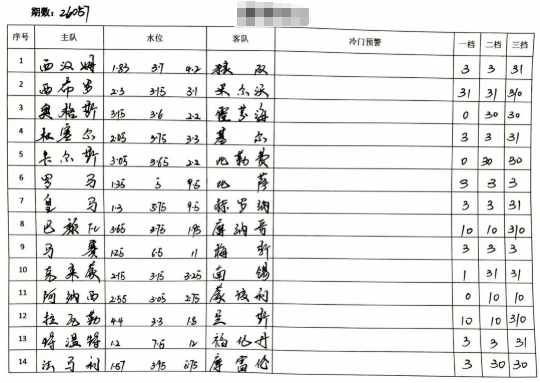 期数: 26057
序号 主队 水位 客队 冷门预警 一档 二档 三档
1 西汉姆 1.83 3.7 4.2 狼队 3 3 31
2 西布罗 2.3 3.15 3.1 米尔沃 31 31 310
3 奥格斯 3.15 3.6 2.2 霍芬海 0 30 30
4 杜塞尔 2.05 3.75 3.3 基尔 3 3 31
5 卡尔斯 3.05 3.65 2.2 比勒费 0 30 30
6 罗马 1.35 5 9.5 比萨 3 3 3
7 皇马 1.3 5.75 9.5 赫罗纳 3 3 31
8 巴黎FC 3.65 3.75 1.95 摩纳哥 10 10 310
9 马赛 1.25 6.5 11 梅斯 3 3 3
10 东莱茵 2.15 3.15 3.25 南锡 1 31 31
11 阿纳西 2.55 3.05 2.75 蒙彼利 0 10 10
12 拉瓦勒 4.4 3.3 1.8 兰斯 10 10 310
13 特温特 1.2 7.5 12 福伦丹 3 3 31
14 法马利 1.57 3.95 5.75 摩雷伦 3 30 30